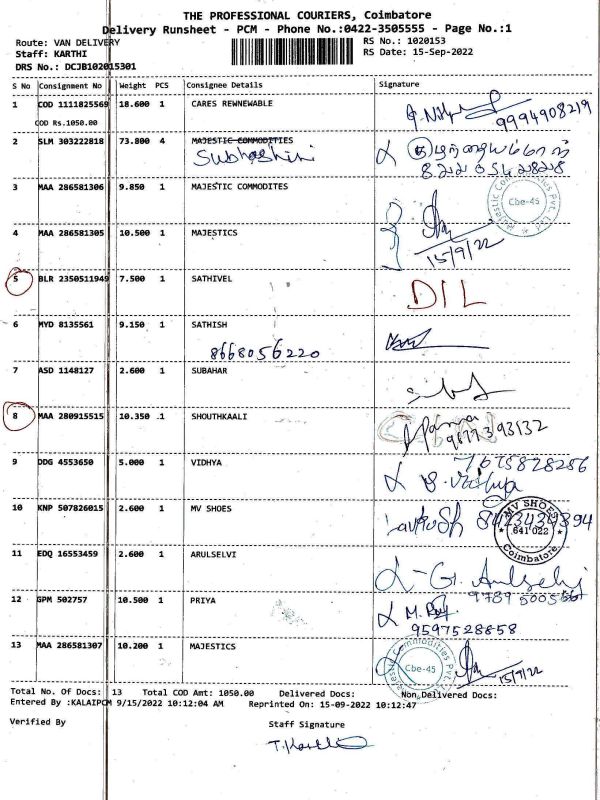 THE PROFESSIONAL COURIERS, Coimbatore
Delivery Runsheet - PCM - Phone No.:0422-3505555 - Page No.:1
Route: VAN DELIVERY RS No.: 1020153
Staff: KARTHI RS Date: 15-Sep-2022
DRS No.: DCJB102015301
S No Consignment No Weight PCS Consignee Details Signature
1 COD 1111825569 18.600 1 CARES REWNEWABLE
9994908219
COD Rs.1050.00
2 SLM 303222818 73.800 4 MAJESTIC COMMODITIES
Subhashini
3 MAA 286581306 9.850 1 MAJESTIC COMMODITES
Majestic Commodities Pvt. Ltd. Cbe-45
4 MAA 286581305 10.500 1 MAJESTICS
15/9/22
5 BLR 2350511949 7.500 1 SATHIVEL
DIL
6 MYD 8135561 9.150 1 SATHISH
8668056220
7 ASD 1148127 2.600 1 SUBAHAR
8 MAA 280915515 10.350 1 SHOUTHKAALI
9 DDG 4553650 5.000 1 VIDHYA
7675828256
10 KNP 507826015 2.600 1 MV SHOES
MV SHOES 641 022 Coimbatore
11 EDQ 16553459 2.600 1 ARULSELVI
12 GPM 502757 10.500 1 PRIYA
9597528858
13 MAA 286581307 10.200 1 MAJESTICS
Cbe-45
Total No. Of Docs: 13 Total COD Amt: 1050.00 Delivered Docs: Non Delivered Docs:
Entered By :KALAIPCM 9/15/2022 10:12:04 AM Reprinted On: 15-09-2022 10:12:47
Verified By Staff Signature
T. Karthi